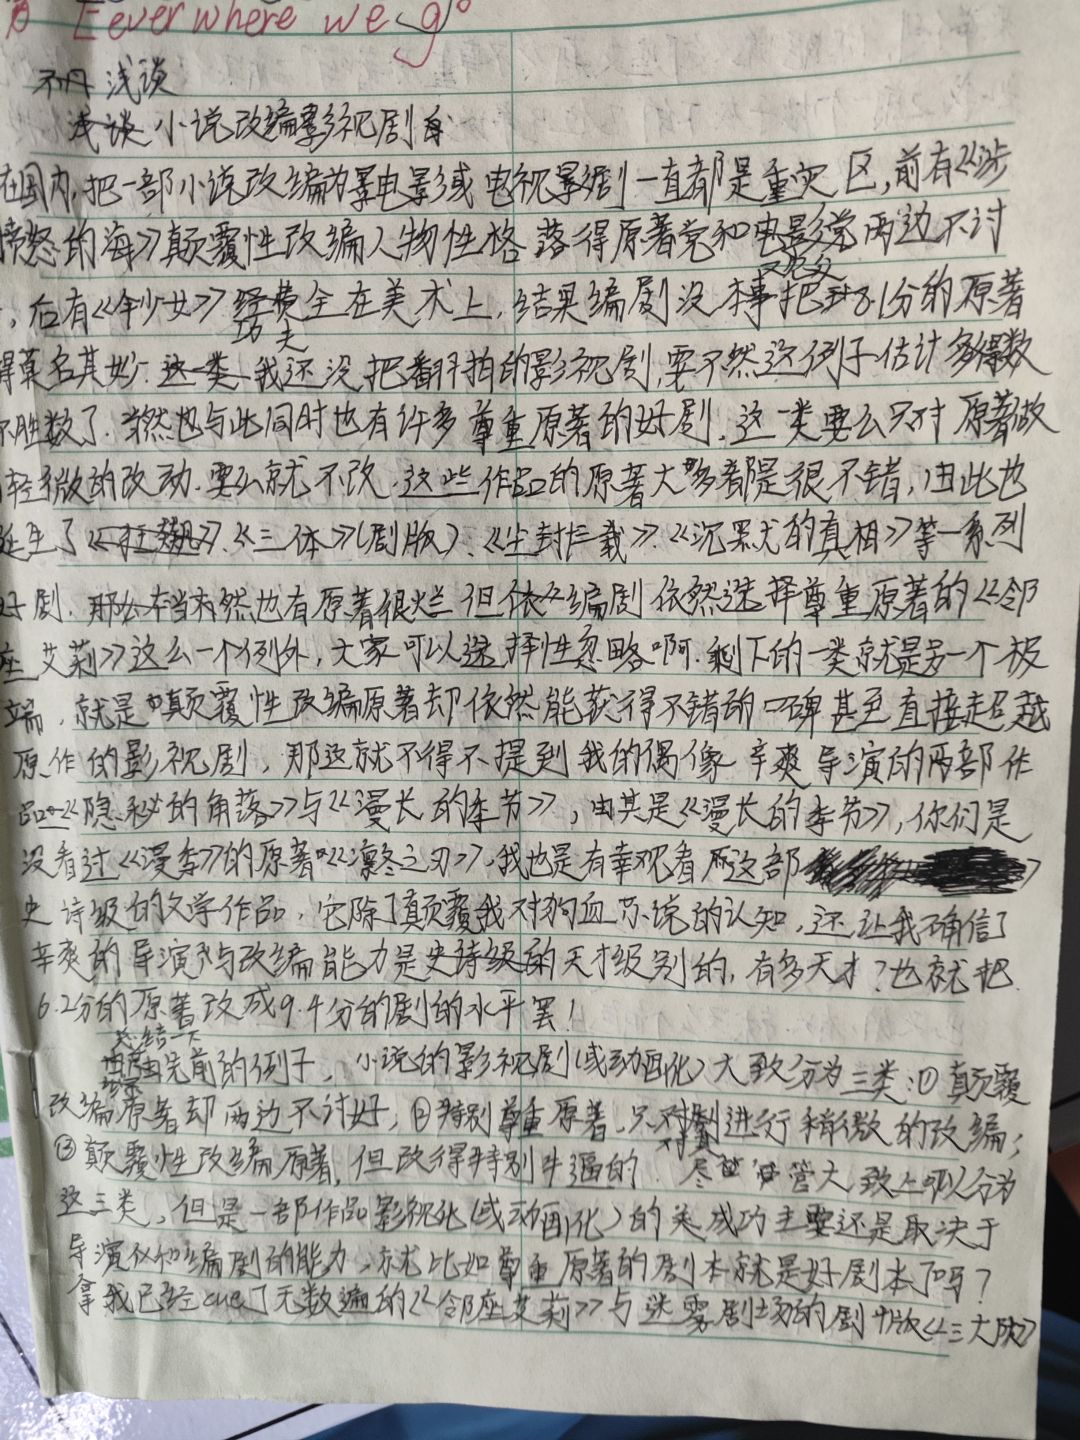 Eeverwhere we go
浅谈
浅谈小说改编影视剧
在国内,把一部小说改编为电影或电视影剧一直都是重灾区,前有《涉
愤怒的海》颠覆性改编人物性格落得原著党和电影党两边不讨
,后有《 少女》功夫全在美术上,结果编剧没本事把8.1分的原著
得莫名其妙.我还没把翻拍的影视剧,要不然这例子估计多得数
不胜数了.当然也与此同时也有许多尊重原著的好剧.这一类要么只对原著做
轻微的改动.要么就不改.这些作品的原著大多都是很不错,由此也
诞生了《狂飙》.《三体》(剧版)、《尘封十三载》.《沉默的真相》等一系列
好剧.那么当然也有原著很烂但编剧依然选择尊重原著的《邻
座艾莉》这么一个例外,大家可以选择性忽略啊.剩下的一类就是另一个极
端,就是颠覆性改编原著却依然能获得不错的口碑甚至直接超越
原作的影视剧,那这就不得不提到我的偶像辛爽导演的两部作
品《隐秘的角落》与《漫长的季节》,由其是《漫长的季节》,你们是
没看过《漫季》的原著《凛冬之刃》,我也是有幸观看所这部
史诗级的文学作品,它除了颠覆我对狗血小说的认知,还让我确信了
辛爽的导演与改编能力是史诗级的天才级别的,有多天才?也就把
6.2分的原著改成9.4分的剧的水平罢!
总结一下
由先前的例子,小说的影视剧(或动画化)大致分为三类:①颠覆
改编原著却两边不讨好;②特别尊重原著,只对剧进行稍微的改编;
③颠覆性改编原著,但改得特别牛逼的.尽管大致上可以分为
这三类,但是一部作品影视化(或动画化)的成功主要还是取决于
导演和编剧的能力,就比如尊重原著的剧本就是好剧本了吗?
拿我已经cue了无数遍的《邻座艾莉》与迷雾剧场的剧版《三大队》